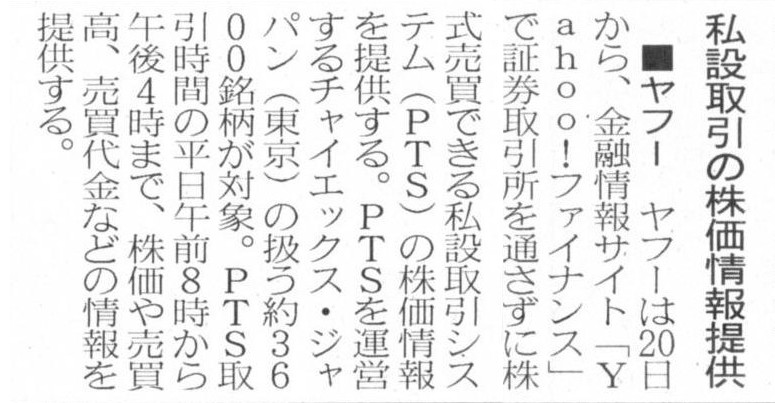 私設取引の株価情報提供
■ヤフー　ヤフーは20日
から、金融情報サイト「Y
ahoo!ファイナンス」
で証券取引所を通さずに株
式売買できる私設取引シス
テム（PTS）の株価情報
を提供する。PTSを運営
するチャイエックス・ジャ
パン（東京）の扱う約36
00銘柄が対象。PTS取
引時間の平日午前8時から
午後4時まで、株価や売買
高、売買代金などの情報を
提供する。